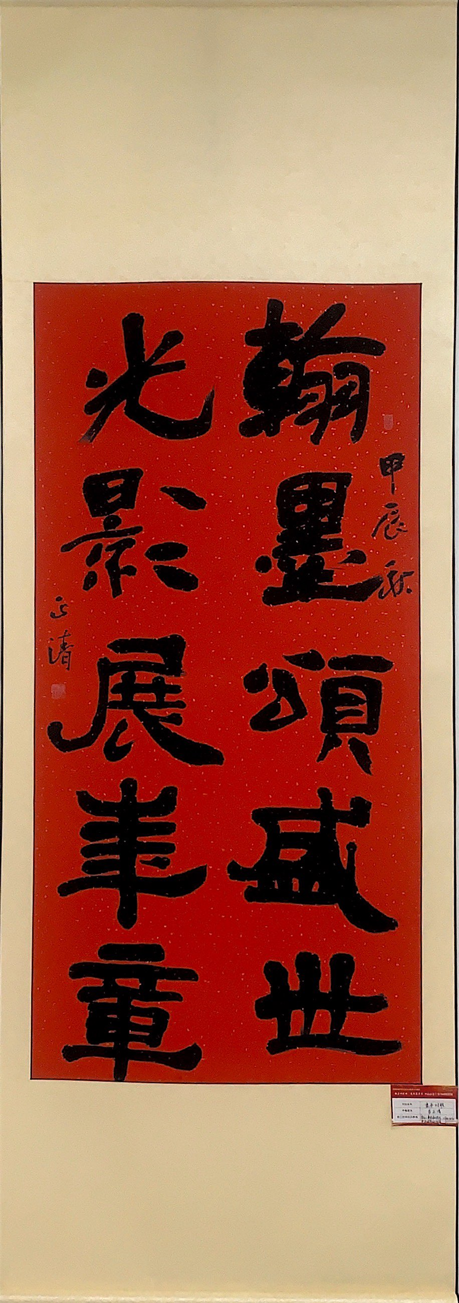 翰墨頌盛世
甲辰秋
光影展華章
正清